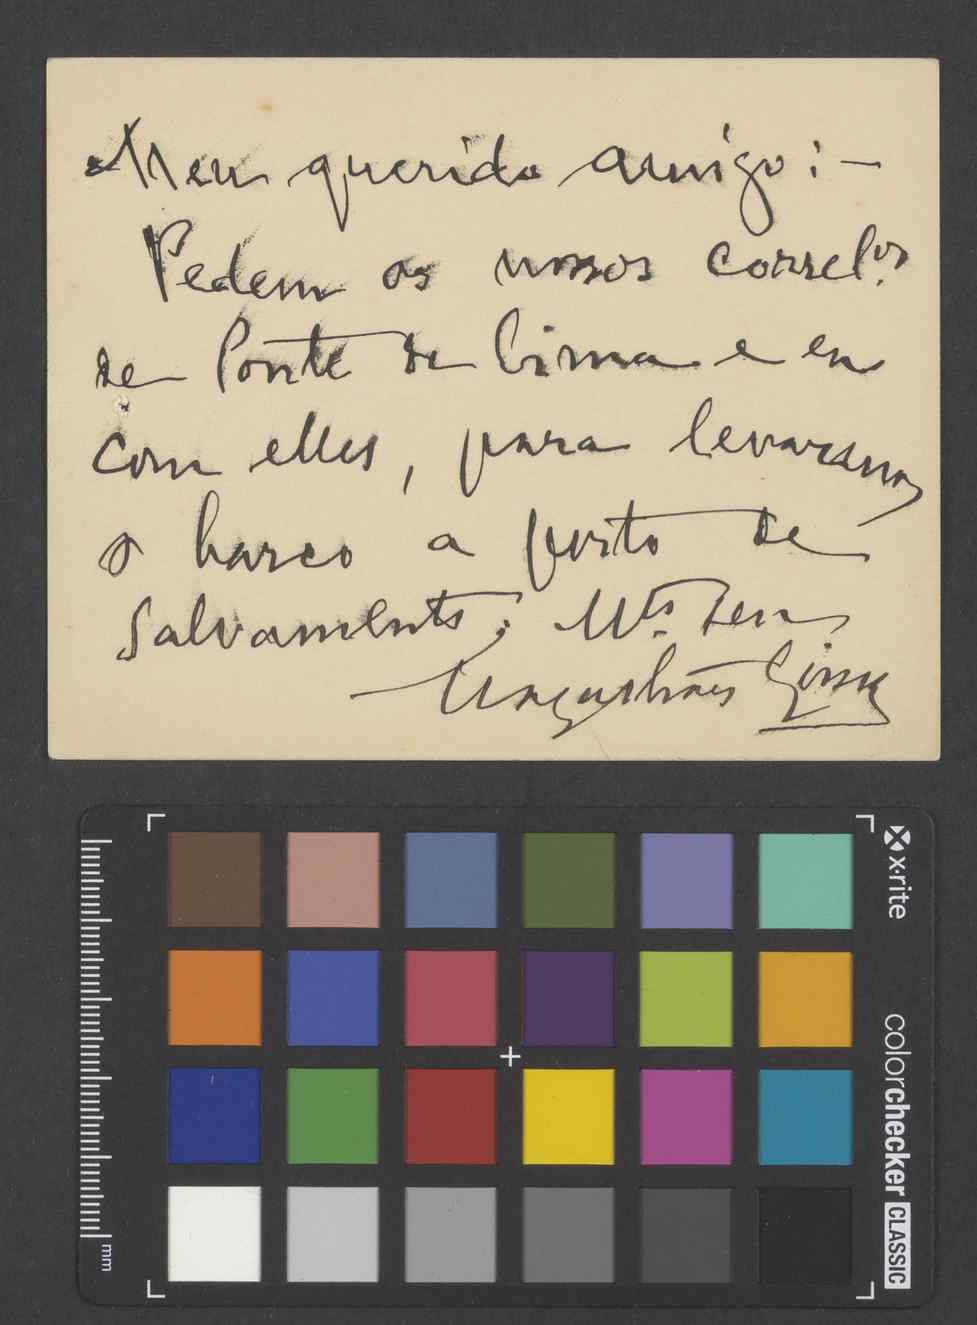 Meu querido amigo: —
Pedem os nossos correlos.
de Ponte de Lima e eu
com elles, para levarmos
o barco a porto de
Salvamento. Mto. Seu,
Magalhães Lima
x·rite
colorchecker CLASSIC
mm